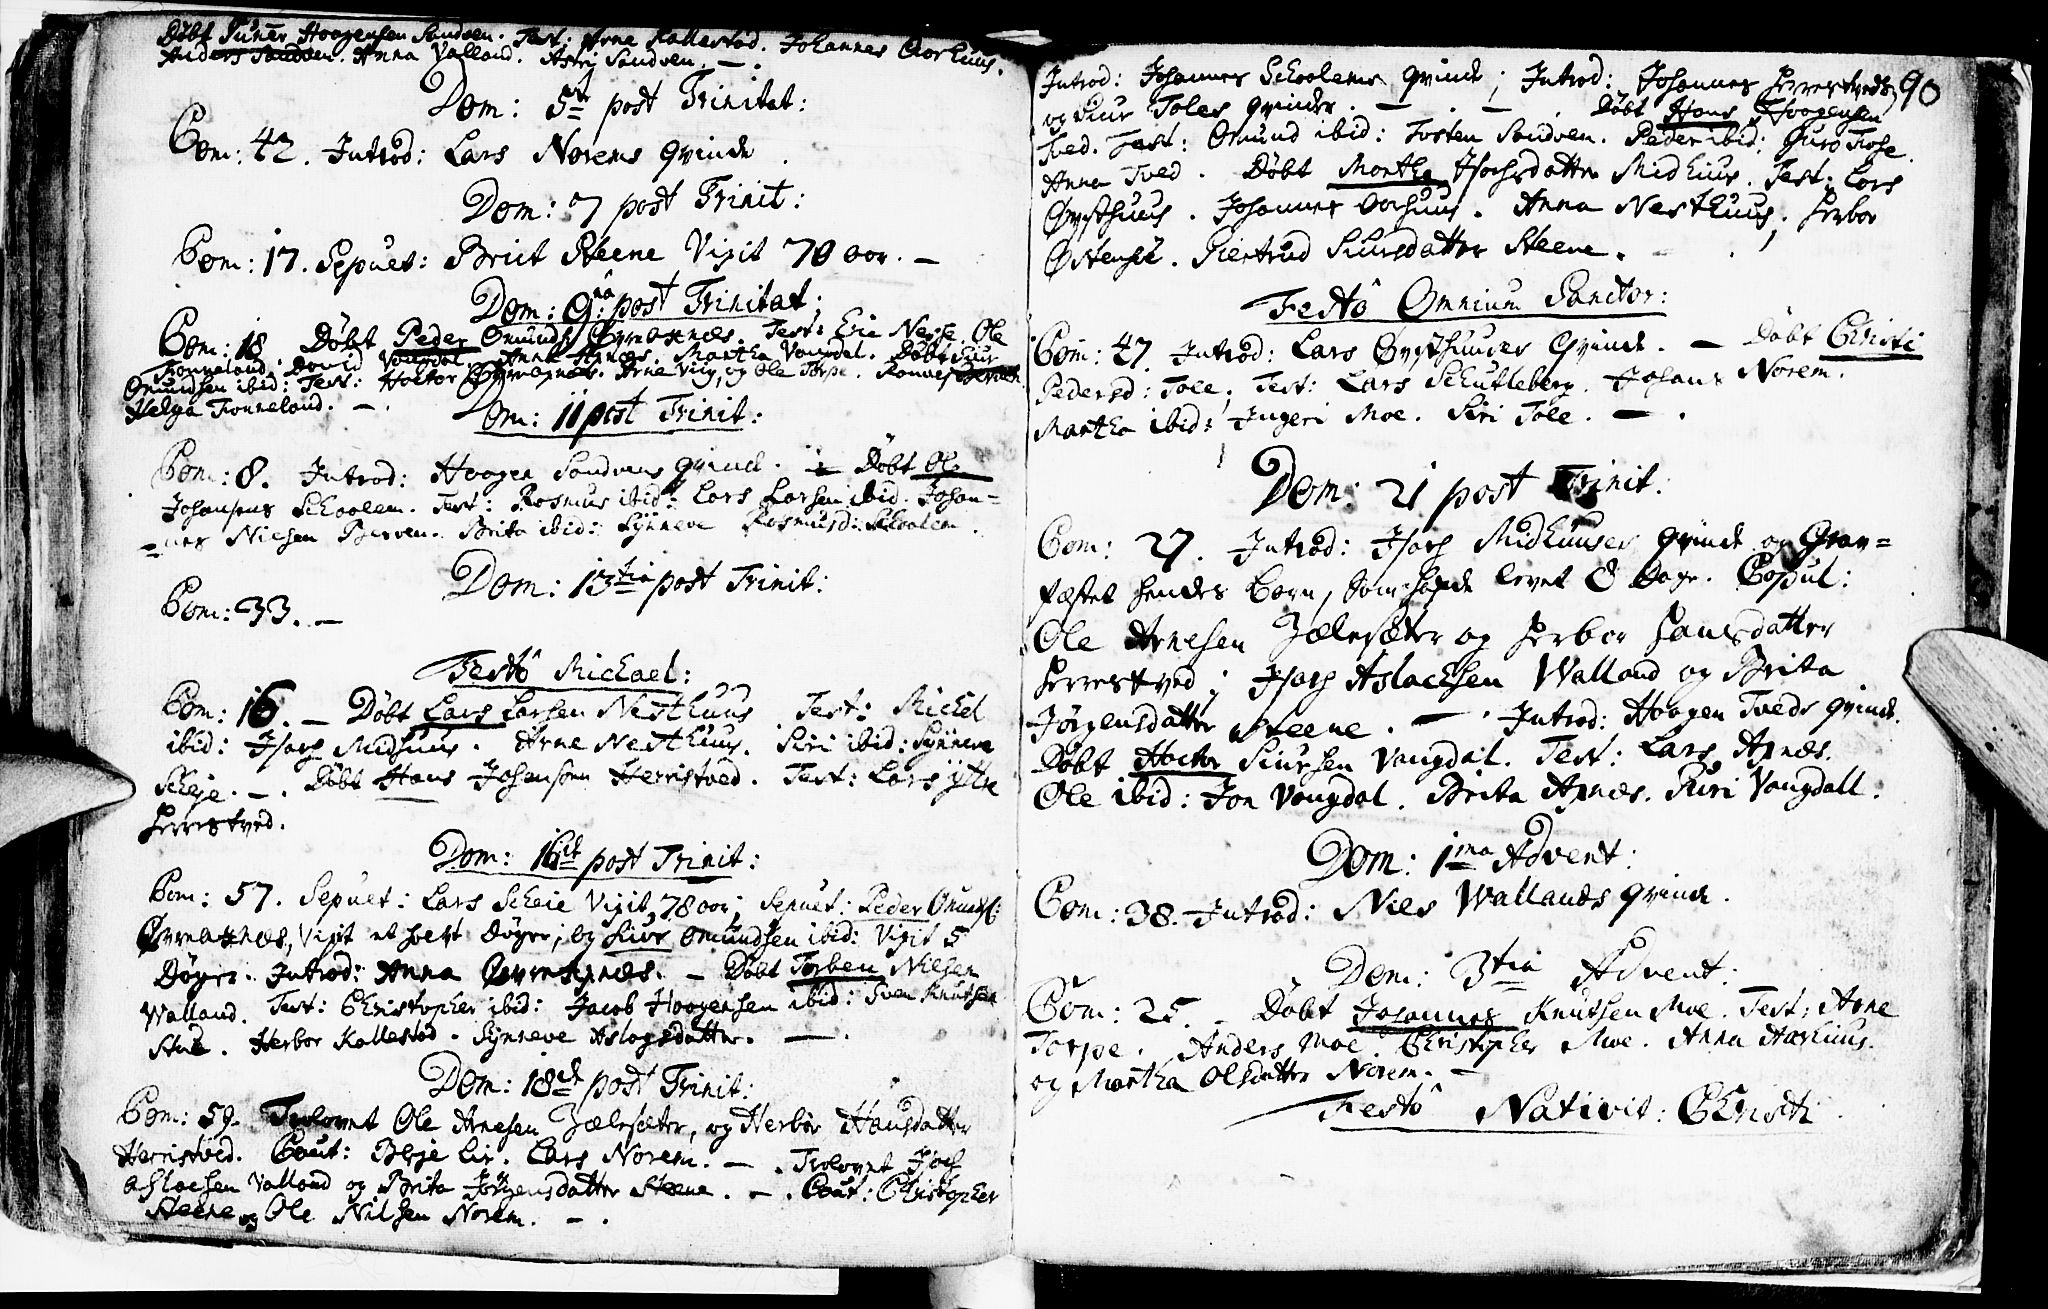 Døbt Tuner Haagensen Sandven. Test: Arne Kallestad. Johannes Aarhuus.
Anders Sandven. Anna Valland. Astri Sandven. —.
Dom: 5te post Trinitat:
Com: 42. Introd: Lars Norems qvinde.
Dom: 7 post Trinit:
Com: 17. Sepuet: Brict Steene Vixit 70 aar. —
Dom: 9na post Trinitat:
Com: 18 Døbt Peder Omunds: Øvreaxnæs. Test: Eric Nesse. Ole
Tronneland. David Vangdal. Anna Axnæs. Martha Vangdal. Døbt Siur
Omundsen ibid: Test: Hector Øvreaxnæs. Arne Viig, og Ole Torpe.
Helga Tronneland. —.
Dom: 11 post Trinit:
Com: 8. Introd: Haagen Sandvens qvinde. — Døbt Ole
Johansens Skaalem. Test: Rasmus ibid: Lars Larsen ibid. Johan=
=nes Nielsen Berven. Brita ibid: Synneve Rasmusd: Skaalem.
Dom: 13tia post Trinit:
Com: 33. —
Festo Michael:
Com: 16. — Døbt Lars Larsen Nesthuus Test: Michel
ibid: Isach Midhuus. Arne Nesthuus. Siri ibid: Synneve
Skeje. —. Døbt Hans Johansøn Herristved. Test: Lars ytre
Herrestved.
Dom: 16de post Trinit:
Com: 57. Sepuet: Lars Skeie Vixit 78 aar; Sepuet: Peder Omunds:
Øvreaxnæs, Vixit et halvt Døgn; og Siur Omundsen ibid: Vixit 5
Døgn. Introd: Anna Øvreaxnæs. — Døbt Torben Nilsen
Walland. Test: Christopher ibid: Jacob Haagensen ibid: Sven Knutsen
Stue. Herbor Kallestad. Synneve Aslagsdatter. —.
Dom: 18de post Trinit:
Com: 59. Trolovet Ole Arnesen Jælesæter, og Herbor Hansdatter
Herristved. Caut: Børje Lie. Lars Norem. —. Trolovet Isach
Aslacsen Valland og Brita Jørgensdatter Steene. —. Caut: Christopher
Steene og Ole Nilsen Norem. —.
90
Introd: Johannes Skaalems qvinde; Introd: Johannes Herrestveds,
og Siur Toles qvinder. — . — . Døbt Hans Haagensen
Tved. Test: Omund ibid: Torsten Sandven. Peder ibid: Guro Tose.
Anna Tved. Døbt Martha Isachsdatter Midhuus. Test: Lars
Øysthuus. Johannes Aarhuus. Anna Nesthuus, Herbor
Østensø. Giertrud Siursdatter Steene.
Festo Omnium Sanctor:
Com: 47. Introd: Lars Øysthuuses Qvinde. — Døbt Christi
Pedersd: Tole; Test: Lars Skutleberg. Johans Norem.
Martha ibid: Ingeri Moe. Siri Tole. —.
Dom: 21 post Trinit:
Com: 27. Introd: Isach Midhuuses qvinde og Grav=
fæstet hendes Barn, som hafde levet 8 Dage. Copul:
Ole Arnesen Jælesæter og Herbor Hansdatter
Herrestved; Isach Aslachsen Walland og Brita
Jørgensdatter Steene. —. Introd: Haagen Tveds qvinde.
Døbt Hector Siursen Vangdal. Test: Lars Axnæs.
Ole ibid: Jon Vangdal. Brita Axnæs. Guri Vangdall.
Dom: 1ma Advent:
Com: 38. Introd: Niels Wallands qvinde.
Dom: 3tia Advent:
Com: 25. — Døbt Johannes Knutsen Moe. Test: Arne
Torpe. Anders Moe. Christopher Moe. Anna Aarhuus.
og Martha Olsdatter Norem. —
Festo Nativit: Christi